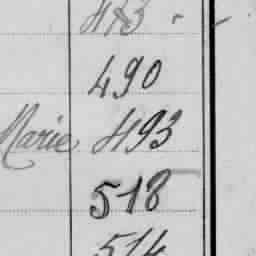 483
490
Marie 493
518
514